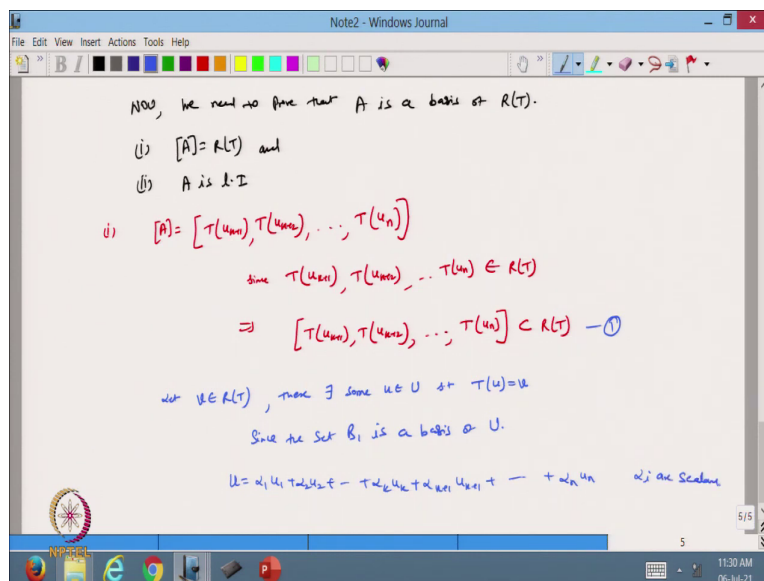 Note2 - Windows Journal
File Edit View Insert Actions Tools Help
B I
Now, we need to prove that A is a basis of R(T).
(i) [A]=R(T) and
(ii) A is l.I
(i) [A]= [T(u_{k+1}), T(u_{k+2}), . . ., T(u_n)]
since T(u_{k+1}), T(u_{k+2}), .. T(u_n) ∈ R(T)
⇒ [T(u_{k+1}), T(u_{k+2}), . . ., T(u_n)] ⊂ R(T) —①
Let v∈R(T), there ∃ some u∈U st T(u)=v
Since the set B₁ is a basis of U.
u= α₁u₁+α₂u₂+ - +α_k u_k+α_{k+1} u_{k+1}+ — +α_n u_n α_i are scalars
5/5
5
NPTEL
11:30 AM
06-Jul-21